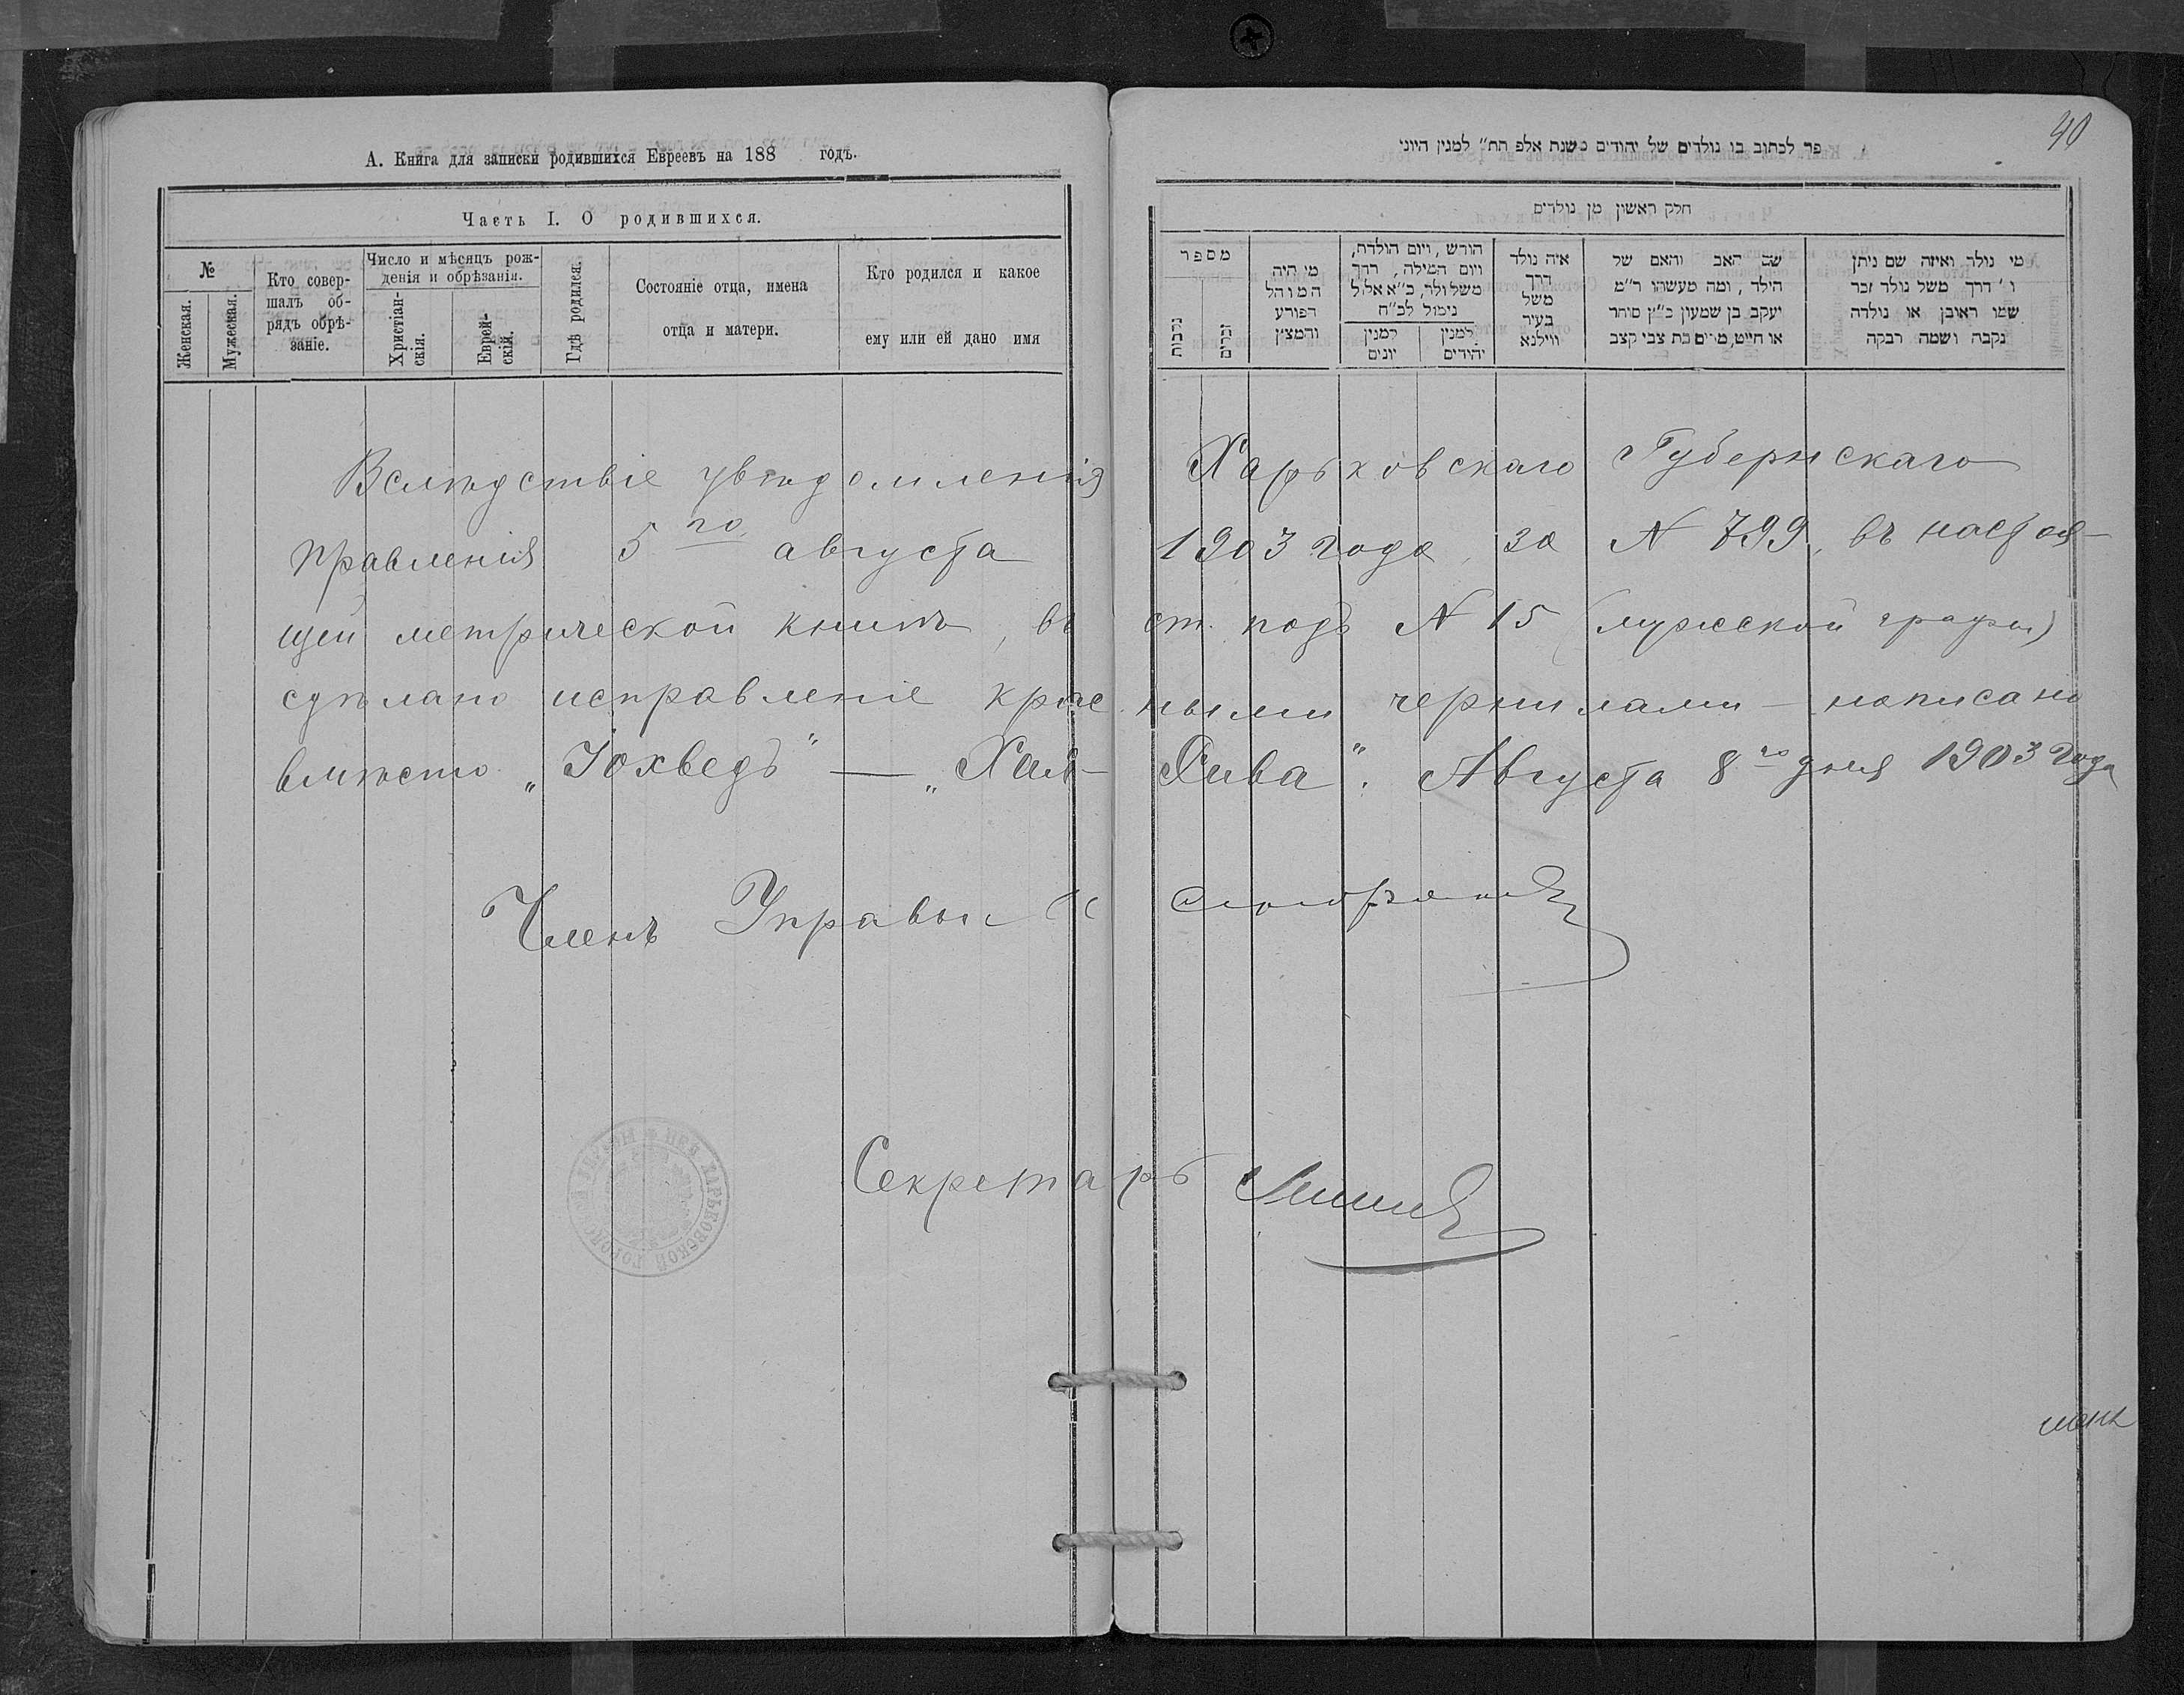 А. Книга для записки родившихся Евреевъ на 188 годъ.
Часть I. О родившихся.
№
Женская.
Мужеская.
Кто совер-
шалъ об-
рядъ обрѣ-
заніе.
Число и мѣсяцъ рож-
денія и обрѣзанія.
Христіан-
скія.
Еврей-
скій.
Гдѣ родился.
Состояніе отца, имена
отца и матери.
Кто родился и какое
ему или ей дано имя
40
פר לכתוב בו נולדים של יהודים משנת אלפ תת״ למנין היוני
חלק ראשון מן נולדים
מספר
נקבות
זכרים
מי היה
המוהל
הפורע
והמצץ
חורש, ויום הולדת,
ויום המילה, דרך
משל ולר, כ״א אלול
נימול לכ״ח
למנין
יונים
למנין
יהידים
איה נולד
דרך
משל
בעיר
ווילנא
שם האב והאם של
הילד, ומה מעשהו ר״מ
יעקב בן שמעון כ״ץ סוחר
או חייט, מרים בת צבי קצב
מי נולד ואיזה שם ניתן
ו' דרך משל נולד זכר
שמו ראובן או נולדה
נקבה ושמה רבקה
Вслѣдствіе увѣдомленія Харьковскаго Губернскаго
правленія 5го августа 1903 года, за № 799, въ настоя-
щей метрической книгѣ, въ ст. подъ № 15 (мужской графы)
сдѣлано исправленіе красными чернилами — написано
вмѣсто „Іохведъ" — „Хаи- Хива". Августа 8го дня 1903 года
Членъ Управы
Секретарь
ХАРЬКОВСКОЙ